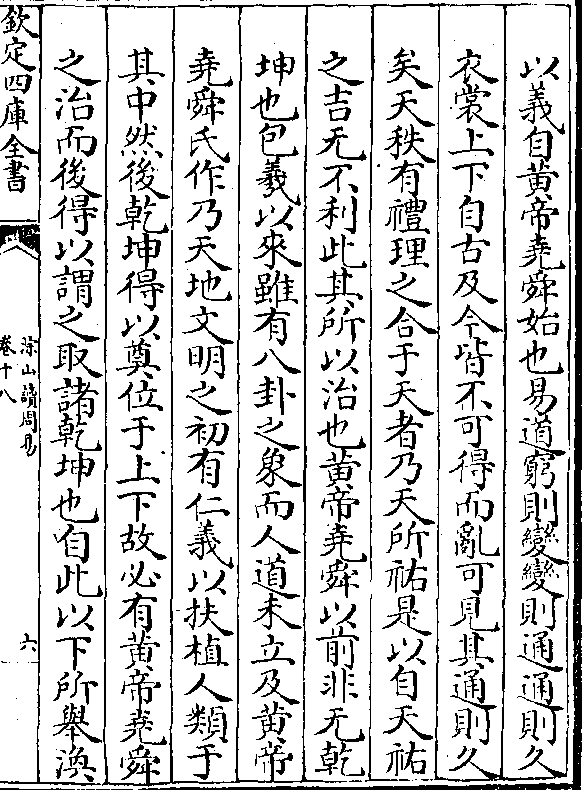 以義自黃帝堯舜始也易道窮則變變則通通則久
衣裳上下自古及今皆不可得而亂可見其通則久
矣天秩有禮理之合于天者乃天所祐是以自天祐
之吉无不利此其所以治也黃帝堯舜以前非无乾
坤也包羲以來雖有八卦之象而人道未立及黃帝
堯舜氏作乃天地文明之初有仁義以扶植人類于
其中然後乾坤得以奠位于上下故必有黃帝堯舜
之治而後得以謂之取諸乾坤也自此以下所舉渙
欽定四庫全書
卷十八
淙山讀周易
六